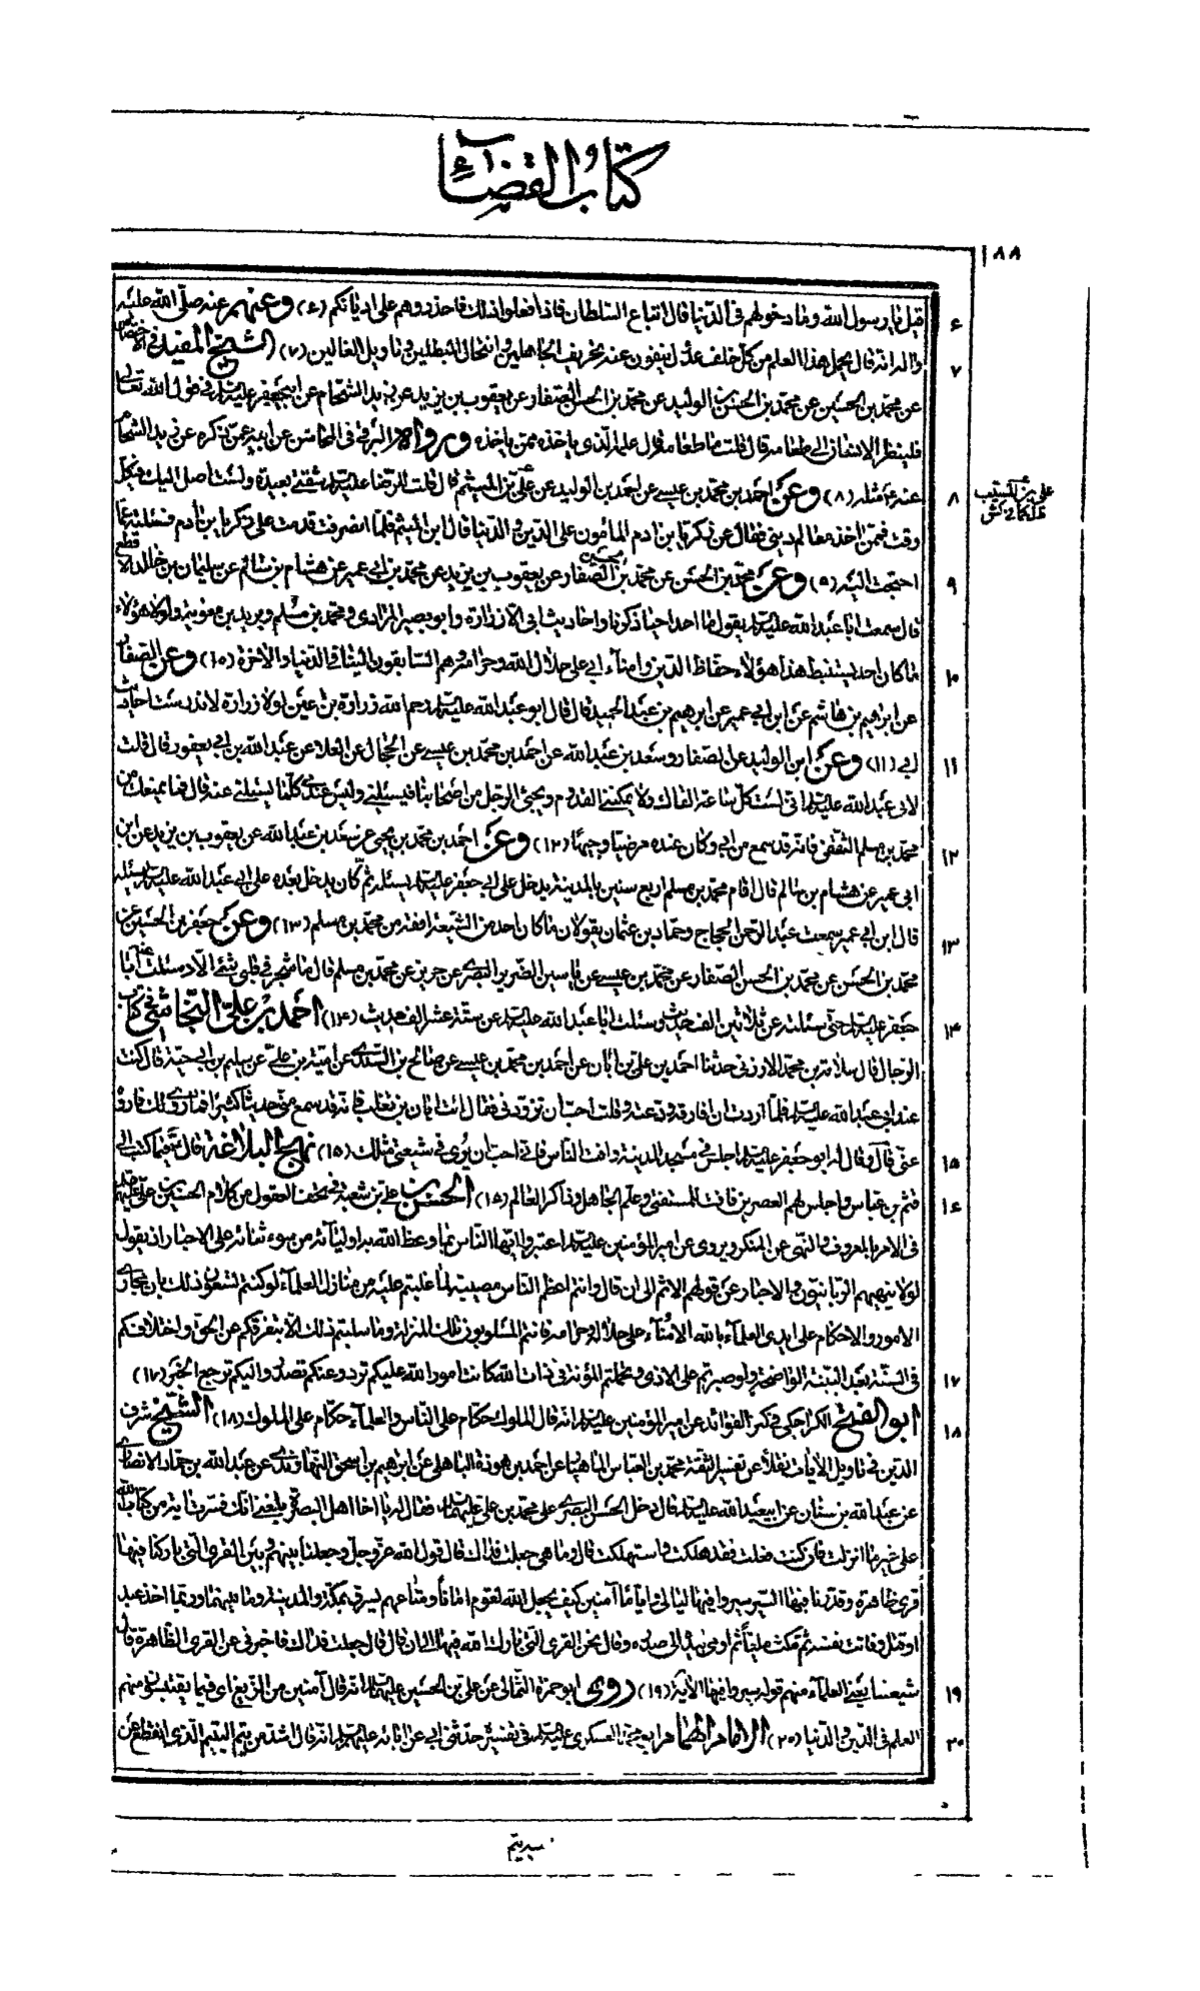 كتاب القضاء
١٨٨
قيل يا رسول الله وما دخولهم في الدنيا قال اتباع السلطان فاذا فعلوا ذلك فاحذروهم على اديانكم (٦) وعنهم عنه صلى الله عليه
واله انه قال يحمل هذا العلم من كل خلف عدل ينفون عنه تحريف الجاهلين وانتحال المبطلين وتاويل الغالين (٧) الشيخ المفيد في الاختصاص
عن محمد بن الحسين عن محمد بن الحسن بن الوليد عن محمد بن الحسن الصفار عن يعقوب بن يزيد عن زيد الشحام عن ابيجعفر عليه السلام في قول الله تعالى
فلينظر الانسان الى طعامه قال قلت ما طعامه قال علمه الذي ياخذه ممن ياخذه ورواه البرقي في المحاسن عن ابيه عمن ذكره عن زيد الشحام
عنه ع مثله (٨) وعن احمد بن محمد بن عيسى عن احمد بن الوليد عن علي بن المسيب قال قلت للرضا عليه السلام شقتي بعيدة ولست اصل اليك في كل
وقت فممن اخذ معالم ديني فقال عن زكريا بن ادم المامون على الدين والدنيا قال ابن المسيب فلما انصرفت قدمت على زكريا بن ادم فسئلته عما
احتجت اليه (٩) وعن محمد بن الحسن عن محمد بن الحسن الصفار عن يعقوب بن يزيد عن محمد بن ابي عمير عن هشام بن سالم عن سليمان بن خالد الاقطع
قال سمعت ابا عبد الله عليه السلام يقول ما احد احيا ذكرنا واحاديث ابي الا زرارة وابو بصير المرادي ومحمد بن مسلم وبريد بن معوية ولولا هؤلاء
ما كان احد يستنبط هذا هؤلاء حفاظ الدين وامناء ابي على حلال الله وحرامه وهم السابقون الينا في الدنيا والاخرة (١٠) وعن الصفار
عن ابرهيم بن هاشم عن ابن ابي عمير عن ابرهيم بن عبد الحميد قال قال ابو عبد الله عليه السلام رحم الله زرارة بن اعين لولا زرارة لاندرست احاديث
ابي (١١) وعن ابن الوليد عن الصفار وسعد بن عبد الله عن احمد بن محمد بن عيسى عن الحجال عن العلاء عن عبد الله بن ابي يعفور قال قلت
لابي عبد الله عليه السلام اني لست كل ساعة القاك ولا يمكنني القدوم ويجيئ الرجل من اصحابنا فيسئلني وليس عندي كلما يسئلني عنه قال فما يمنعك من
محمد بن مسلم الثقفي فانه قد سمع من ابي وكان عنده مرضيا وجيها (١٢) وعن احمد بن محمد بن يحيى عن سعد بن عبد الله عن يعقوب بن يزيد عن ابن
ابي عمير عن هشام بن سالم قال اقام محمد بن مسلم اربع سنين بالمدينة يدخل على ابي جعفر عليه السلام يسئله ثم كان يدخل بعده على ابي عبد الله عليه السلام يسئله
قال ابن ابي عمير سمعت عبد الرحمن الحجاج وحماد بن عثمان يقولان ما كان احد من الشيعة افقه من محمد بن مسلم (١٣) وعن جعفر بن الحسين عن
محمد بن الحسن عن محمد بن الحسن الصفار عن محمد بن عيسى عن ياسين الضرير البصري عن حريز عن محمد بن مسلم قال ما شجر في قلبي شئ الا سئلت عنه ابا
جعفر عليه السلام حتى سئلته عن ثلاثين الف حديث وسئلت ابا عبد الله عليه السلام عن ستة عشر الف حديث (١٤) احمد بن علي النجاشي في كتاب
الرجال قال سلامة بن محمد الارزني حدثنا احمد بن علي بن ابان عن احمد بن محمد بن عيسى عن صالح بن السندي عن امية بن علي عن سليم بن ابي حية قال كنت
عند ابي عبد الله عليه السلام فلما اردت ان افارقه ودعته وقلت احب ان تزودني فقال ائت ابان بن تغلب فانه قد سمع مني حديثا كثيرا فما روى لك فاروه
عني قال وقال له ابو جعفر عليه السلام اجلس في مسجد المدينة وافت الناس فاني احب ان يرى في شيعتي مثلك (١٥) نهج البلاغة قال ع فيما كتب الى
قثم بن عباس واجلس لهم العصرين فافت للمستفتي وعلم الجاهل وذاكر العالم (١٥) الحسن بن علي بن شعبة في تحف العقول من كلام الحسين بن علي عليهما السلام
في الامر بالمعروف والنهي عن المنكر ويروى عن امير المؤمنين عليه السلام اعتبروا ايها الناس بما وعظ الله به اوليائه من سوء ثنائه على الاحبار اذ يقول
لولا ينهيهم الربانيون والاحبار عن قولهم الاثم الى ان قال وانتم اعظم الناس مصيبة لما غلبتم عليه من منازل العلماء لو كنتم تشعرون ذلك بان مجاري
الامور والاحكام على ايدي العلماء بالله الامناء على حلاله وحرامه فانتم المسلوبون تلك المنزلة وما سلبتم ذلك الا بتفرقكم عن الحق واختلافكم
في السنة بعد البينة الواضحة ولو صبرتم على الاذى وتحملتم المؤنة في ذات الله كانت امور الله عليكم ترد وعنكم تصدر واليكم ترجع الخبر (١٧)
ابو الفتح الكراجكي في كنز الفوائد عن امير المؤمنين عليه السلام انه قال الملوك حكام على الناس والعلماء حكام على الملوك (١٨) الشيخ شرف
الدين في تاويل الايات نقلا عن تفسير الثقة محمد بن العباس الماهيار عن احمد بن هوذة الباهلي عن ابرهيم بن اسحق النهاوندي عن عبد الله بن حماد الانصاري
عن عبد الله بن سنان عن ابيعبد الله عليه السلام قال دخل الحسن البصري على محمد بن علي عليهما السلام فقال له يا اخا اهل البصرة بلغني انك فسرت اية من كتاب الله
على غير ما انزلت فان كنت فعلت فقد هلكت واستهلكت قال وما هي جعلت فداك قال قول الله عز وجل وجعلنا بينهم وبين القرى التي باركنا فيها
قرى ظاهرة وقدرنا فيها السير سيروا فيها ليالي واياما آمنين كيف يجعل الله لقوم امانا ومتاعهم يسرق بمكة والمدينة وما بينهما وربما اخذ عبد
او قتل وفاتت نفسه ثم مكث مليا ثم اومى بيده الى صدره وقال نحن القرى التي بارك الله فيها الى ان قال قال جعلت فداك فاخبرني عن القرى الظاهرة قال
شيعتنا يعني العلماء منهم قوله سيروا فيها الاية (١٩) روى ابو حمزة الثمالي عن علي بن الحسين عليهما السلام انه قال آمنين من الزيغ اي فيما يقتبسون منهم
العلم في الدين والدنيا (٢٠) الامام الهمام ابو محمد العسكري عليه السلام في تفسيره حدثني ابي عن ابائه عليهم السلام انه قال اشد من يتم اليتيم الذي انقطع عن
٦
٧
٨
علي بن المسيب
٩
١٠
١١
١٢
١٣
١٤
١٥
١٦
١٧
١٨
١٩
٢٠